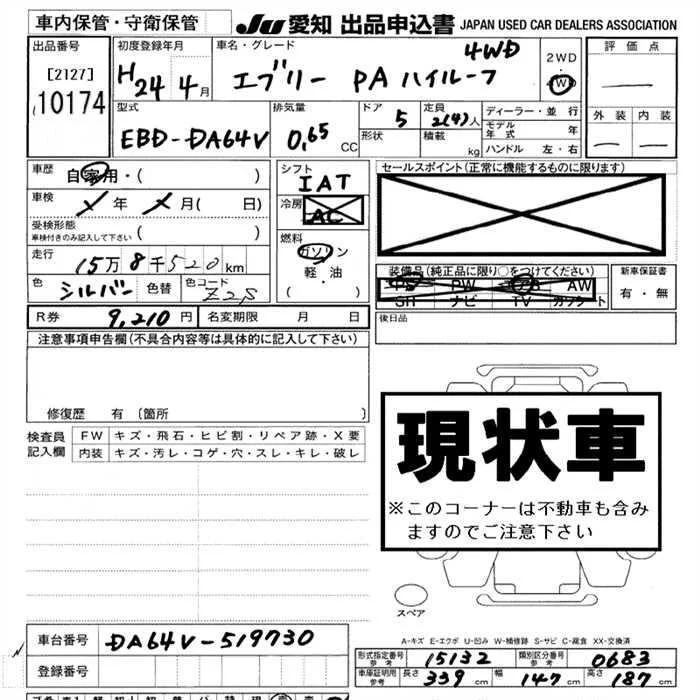 車内保管・守衛保管
JU 愛知 出品申込書 JAPAN USED CAR DEALERS ASSOCIATION
出品番号
[2127]
10174
初度登録年月
H24 4月
車名・グレード
4WD
エブリー PA ハイルーフ
2WD
・
4WD
評価点
外装 内装
型式
EBD-DA64V
排気量
0.65 CC
ドア
5
形状
定員
2(4)人
積載
kg
ディーラー・並行
モデル年式 年
ハンドル 左・右
車歴
自家用・( )
車検
年 月( 日)
受検形態
車検付きのみ記入して下さい ( )
走行
15万8千520km
色
シルバー
色替
色コード
Z2S
シフト
IAT
冷房
AC
燃料
ガソリン
軽・油
( )
セールスポイント(正常に機能するものに限ります)
装備品(純正品に限り○をつけてください)
PS PW AW
SR ナビ TV カワシート
新車保証書
有・無
R券 9,210円
名変期限 月 日
後日品
注意事項申告欄(不具合内容等は具体的に記入して下さい)
修復歴 有 [箇所 ]
検査員記入欄
FW キズ・飛石・ヒビ割・リペア跡・X要
内装 キズ・汚レ・コゲ・穴・スレ・キレ・破レ
現状車
※このコーナーは不動車も含み
ますのでご注意下さい
スペア
A-キズ E-エクボ U-凹み W-補修跡 S-サビ C-腐食 XX-交換済
車台番号 DA64V-519730
登録番号
形式指定番号 参考 15132
類別区分番号 参考 0683
車庫証明用 参考 長さ 339cm 幅 147cm 高さ 187cm